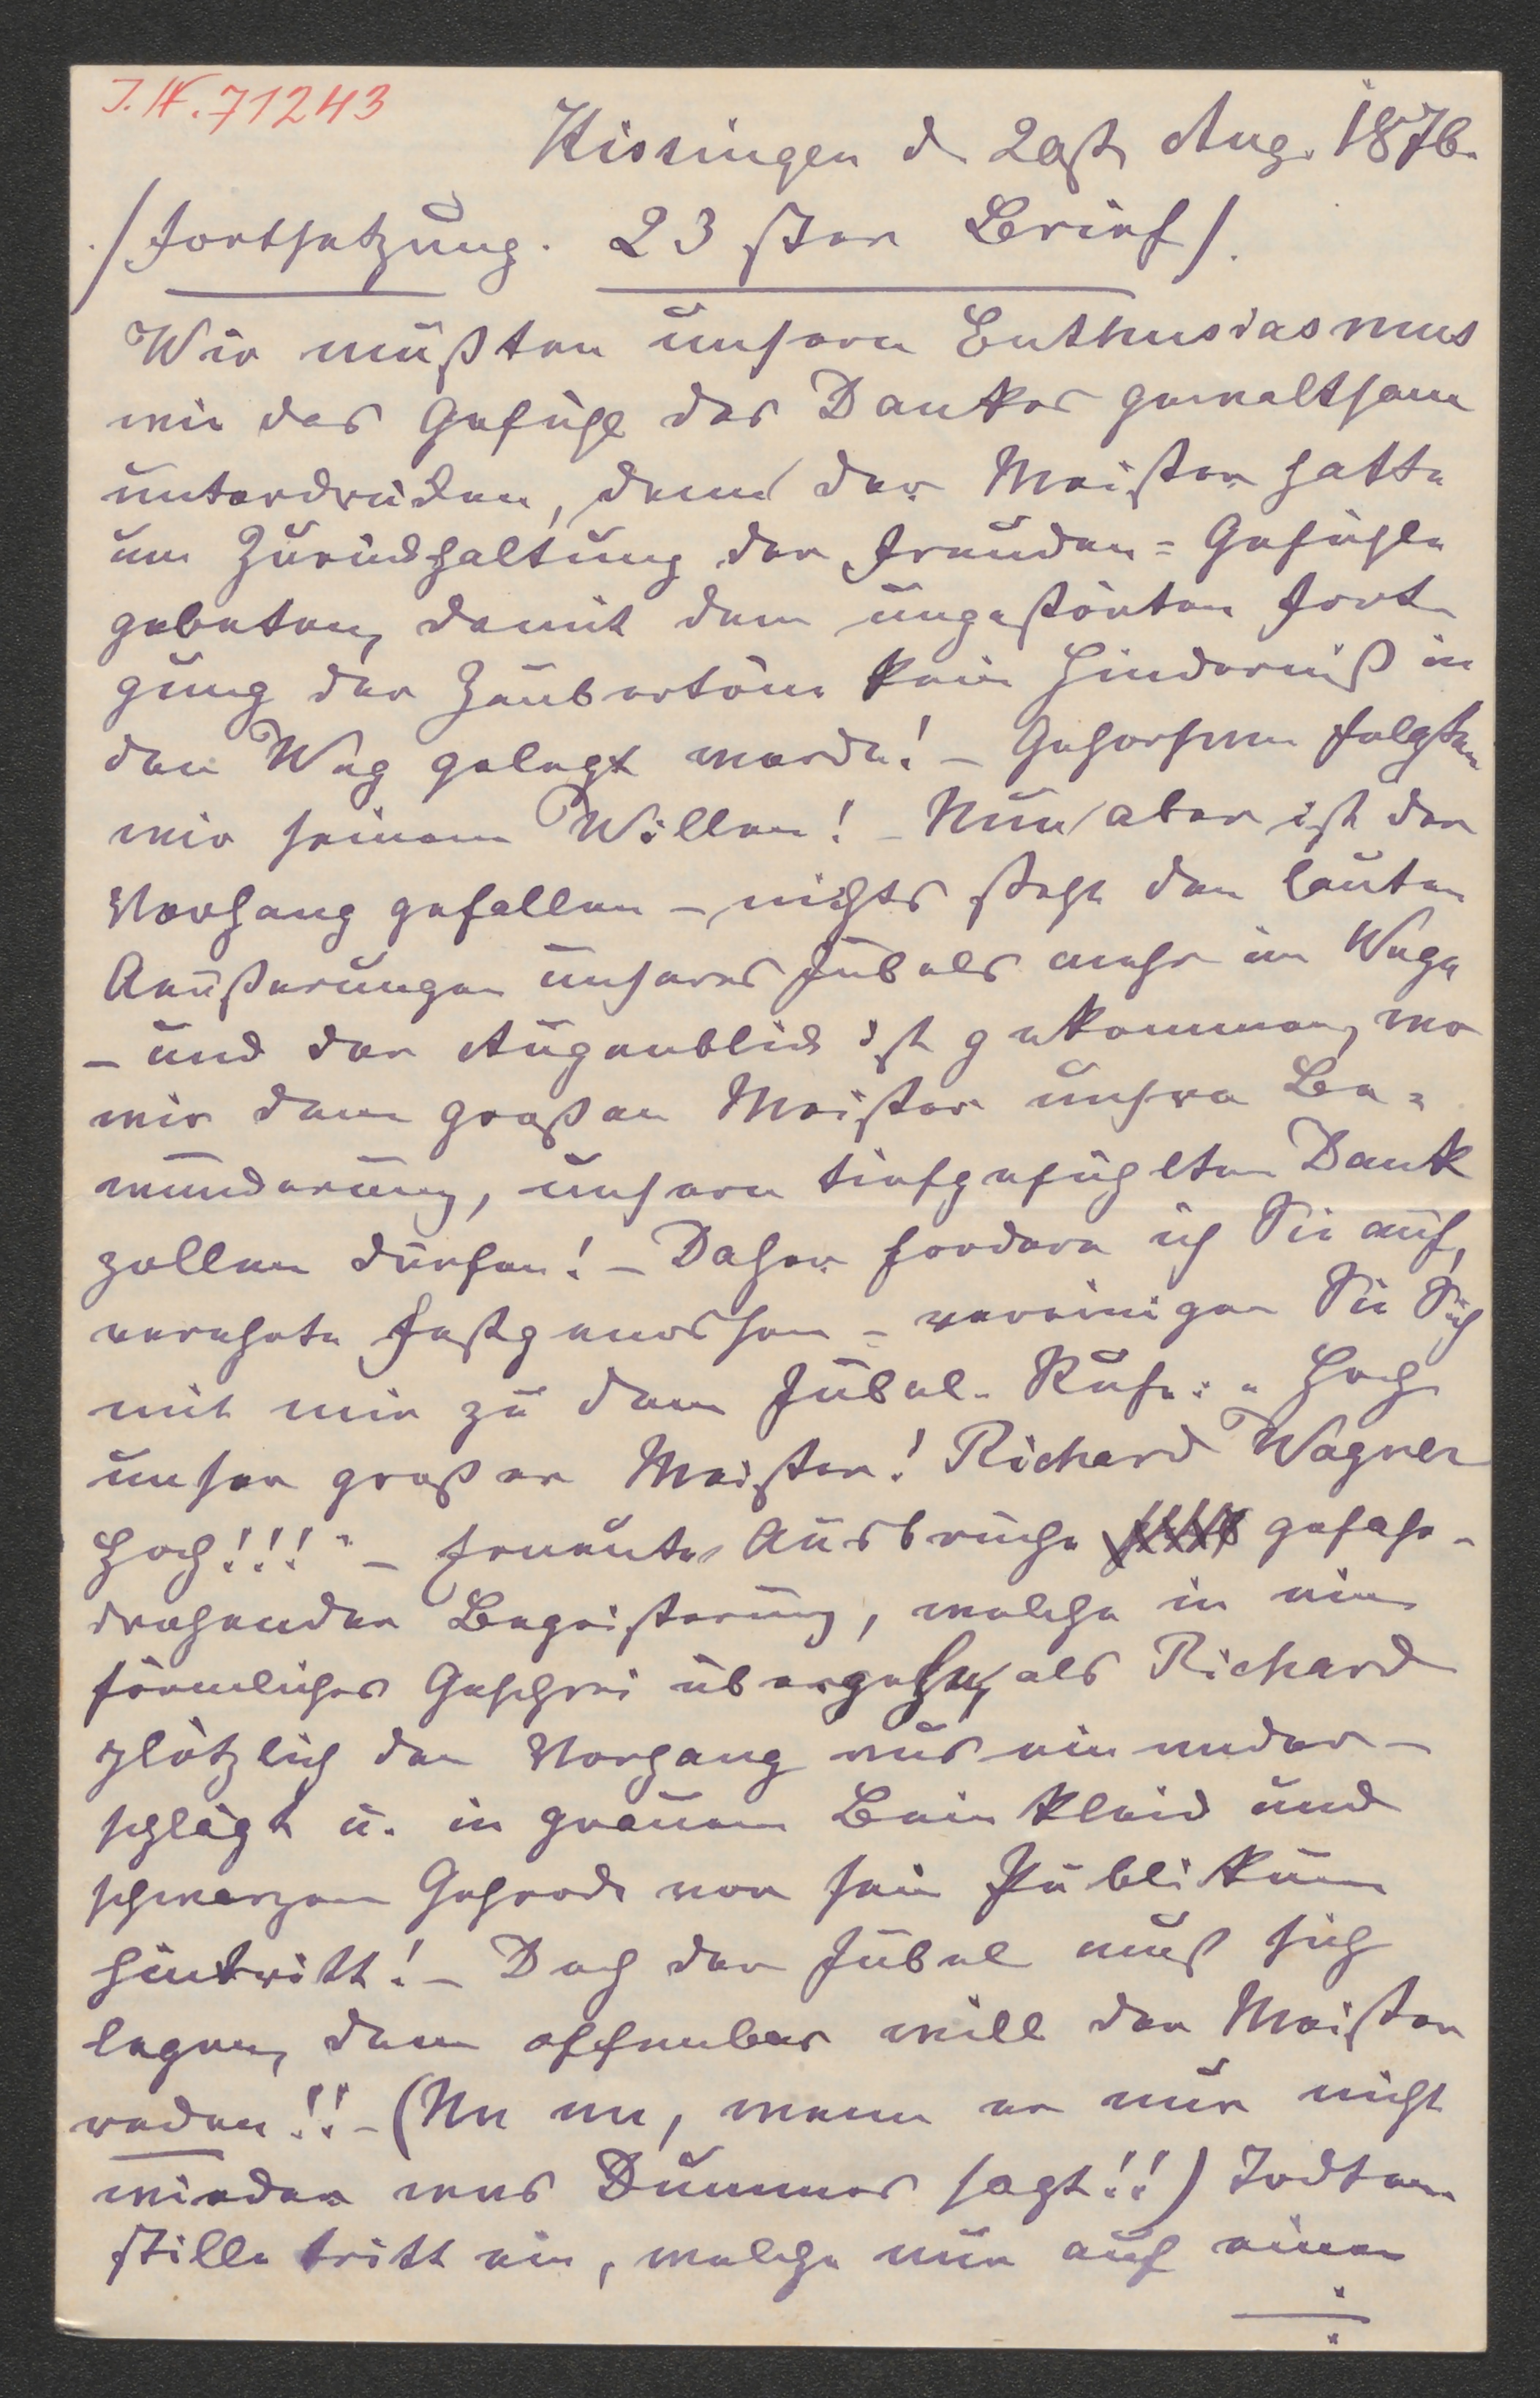 I.N. 71243
Kissingen d 20st Aug. 1876.
/Fortsetzung. 23ster Brief/.
Wir mußten unsern Enthusiasmus
wie das Gefühl des Dankes gewaltsam
unterdrücken, denn der Meister hatte
um Zurückhaltung der Freuden=Gefühle
gebeten, damit dem ungestörten Fort
gung der Zaubertöne kein Hinderniß in
den Weg gelegt werde! – Gehorsam folgten
wir seinem Willen! – Nun aber ist der
Vorhang gefallen – nichts steht den lauten
Aeußerungen unseres Jubels mehr im Wege
– und der Augenblick ist gekommen, wo
wir dem großen Meister unsre Be=
wunderung, unsern tiefgefühlten Dank
zollen dürfen! – Daher fordere ich Sie auf,
verehrte Festgenossen – vereinigen Sie Sich
mit mir zu dem Jubel-Rufe: „Hoch
unser großer Meister! Richard Wagner
Hoch!!!" – Erneute Ausbrüche gefahr-
drohender Begeisterung, welche in ein
förmliches Geschrei übergehen, als Richard
plötzlich den Vorhang auseinander-
schlägt u. in grauem Beinkleid und
schwarzem Gehrock vor sein Publikum
hintritt! – Doch der Jubel muß sich
legen, denn offenbar will der Meister
reden!! – (Na na, wenn er nur nicht
wieder was Dummes sagt!!) Todten
stille tritt ein, welche nur auf einen